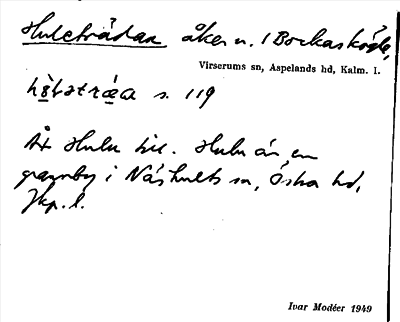 Huleträdan åker u. 1 Bockaskögle,
Virserums sn, Aspelands hd, Kalm. l.
s. 119
Åt Hulu hic. Hulu är en
grannby i Näshults sn, Östra hd,
Jkp. l.
Ivar Modéer 1949